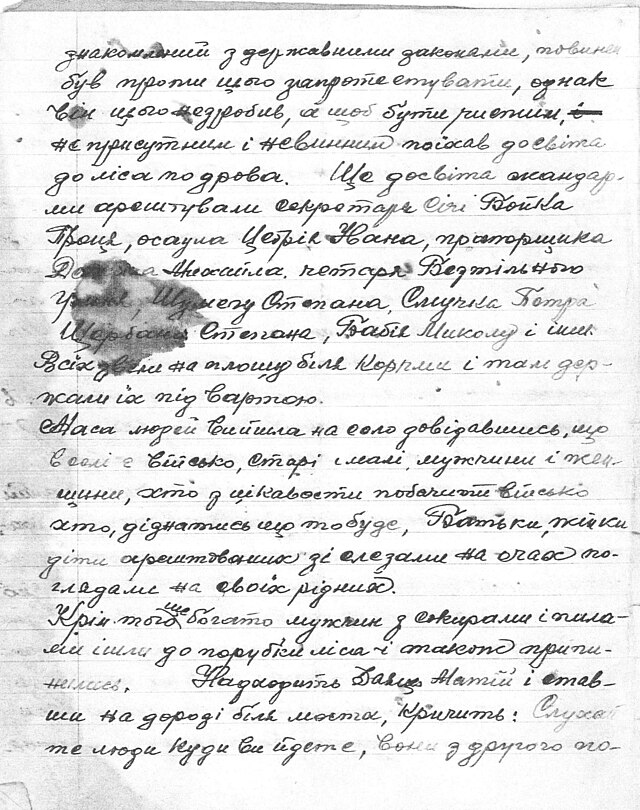 знакомлений з державними законами, повинен
був проти цього запротестувати, однак
він цього не зробив, а щоб бути чистим, і
не присутним і невинний поїхав досвіта
до ліса по дрова. Ще досвіта жандар-
ми арештували секретаря Січі Бойка
Проця, осаула Цебрія Івана, праторщика
Михайла, четаря
Степана, Смучка Петра
Щербана Степана, Бабія Миколу і інш.
Всіх звели на площу біля Корчми і там дер-
жали їх під вартою.
Маса людей вийшла на село довідавшись, що
в селі є військо, старі і малі, мужчини і жен-
щини, хто з цікавости побачити військо
хто, дізнатись що то буде, Батьки, жінки
діти арештованих зі слезами на очах по-
глядали на своїх рідних.
Крім того ще богато мужчин з сокирами і пила-
ми ішли до порубки ліса і також припи-
нились. Надходить Даяць Матій і став-
ши на дорозі біля моста, кричить: Слухай
те люди куди ви йдете, вони з другого по-